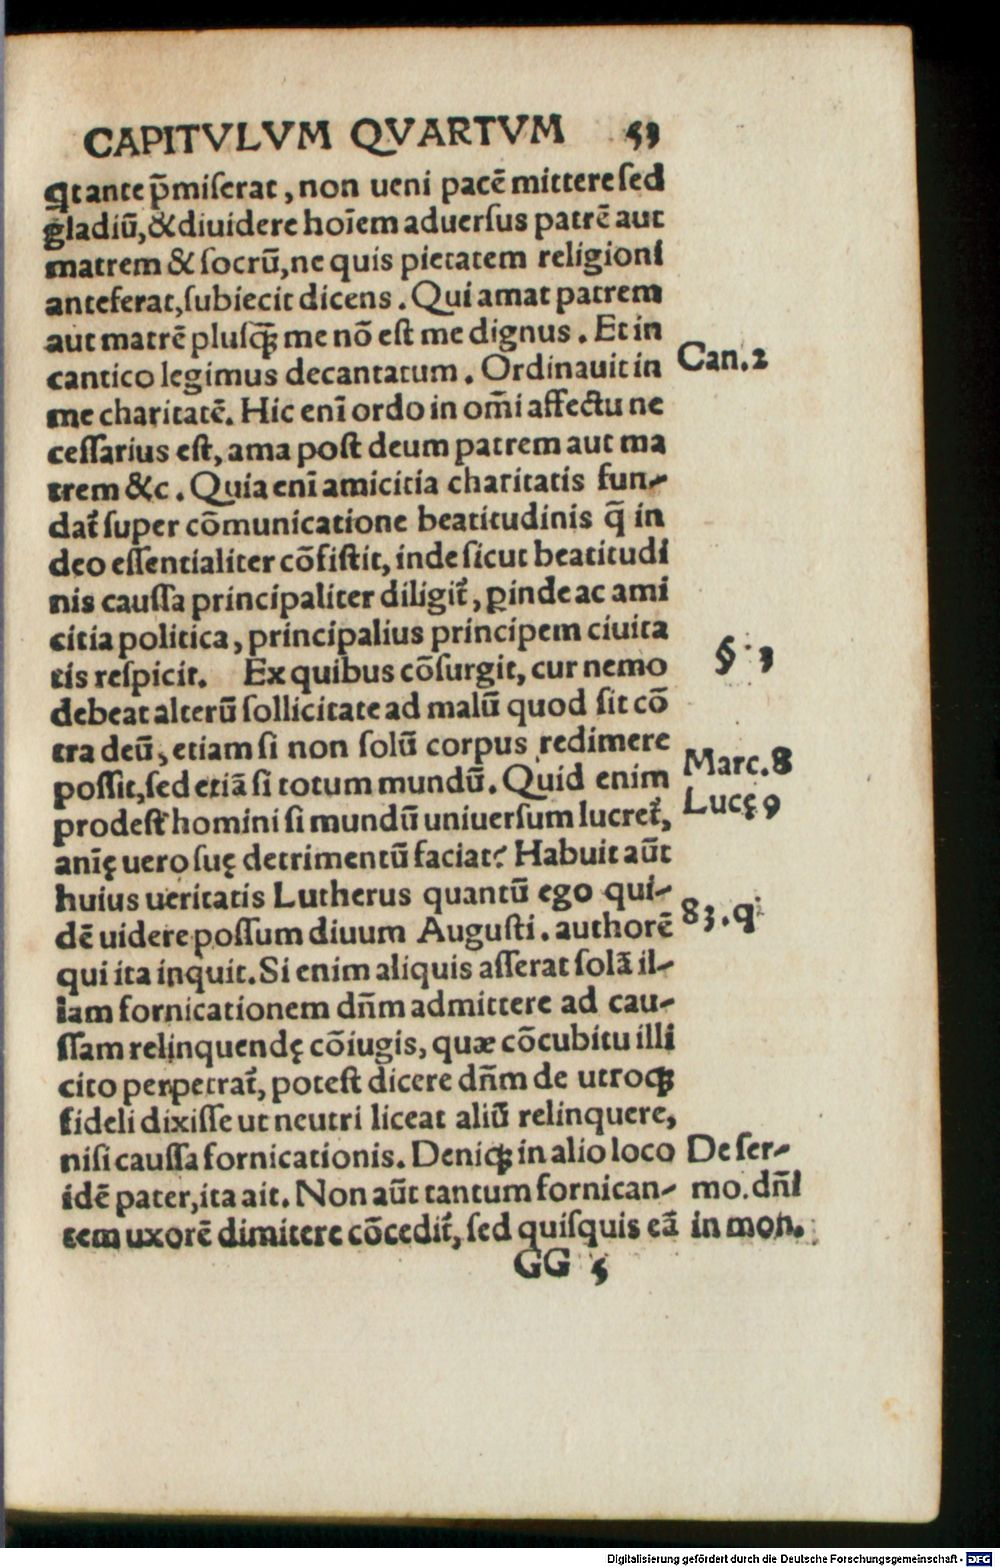 CAPITVLVM QVARTVM 53
ꝗtante p̄miserat, non ueni pacē mittere sed
gladiū, & diuidere hoīem aduersus patrē aut
matrem & socrū, ne quis pietatem religioni
anteferat, subiecit dicens. Qui amat patrem
aut matrē plusꝗ̄ me nō est me dignus. Et in
cantico legimus decantatum. Ordinauit in
Can. 2
me charitatē. Hic enī ordo in om̄i affectu ne
cessarius est, ama post deum patrem aut ma
trem &c. Quia enī amicitia charitatis fun-
dat᷑ super cōmunicatione beatitudinis q̄ in
deo essentialiter cōsistit, inde sicut beatitudi
nis caussa principaliter diligit᷑, ꝓinde ac ami
citia politica, principalius principem ciuita
tis respicit. Ex quibus cōsurgit, cur nemo
§ 3
debeat alterū sollicitate ad malū quod sit cō
tra deū, etiam si non solū corpus redimere
possit, sed etiā si totum mundū. Quid enim
Marc. 8
prodest homini si mundū uniuersum lucret᷑,
Lucę 9
anīę uero suę detrimentū faciat? Habuit aūt
huius ueritatis Lutherus quantū ego qui-
dē uidere possum diuum Augusti. authorē
83. q.
qui ita inquit. Si enim aliquis asserat solā il-
lam fornicationem dn̄m admittere ad cau-
ssam relinquendę cōiugis, quæ cōcubitu illi
cito perpetrat᷑, potest dicere dn̄m de utroqꝫ
fideli dixisse ut neutri liceat aliū relinquere,
nisi caussa fornicationis. Deniqꝫ in alio loco
De ser-
idē pater, ita ait. Non aūt tantum fornican-
mo. dn̄i
tem uxorē dimitere cōcedit᷑, sed quisquis eā
in mon.
GG 5
Digitalisierung gefördert durch die Deutsche Forschungsgemeinschaft - DFG